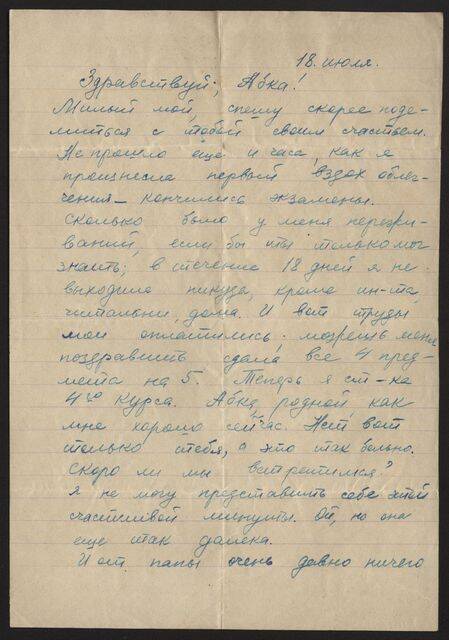 18. июля.
Здравствуй, Абка!
Милый мой, спешу скорее поде-
литься с тобой своим счастьем.
Не прошло еще и часа, как я
произнесла первый вздох облег-
чения – кончились экзамены.
Сколько было у меня пережи-
ваний, если бы ты только мог
знать; в течение 18 дней я не
выходила никуда, кроме ин-та
читальни, дома. И вот труды
мои оплатились. можешь меня
поздравить сдала все 4 пред-
мета на 5. Теперь я ст-ка
4го курса. Абка, родной как
мне хорошо сейчас. Нет вот
только тебя, а это так больно.
Скоро ли мы встретимся?
Я не могу представить себе этой
счастливой минуты. Ой, но она
еще так далека.
И от папы очень давно ничего